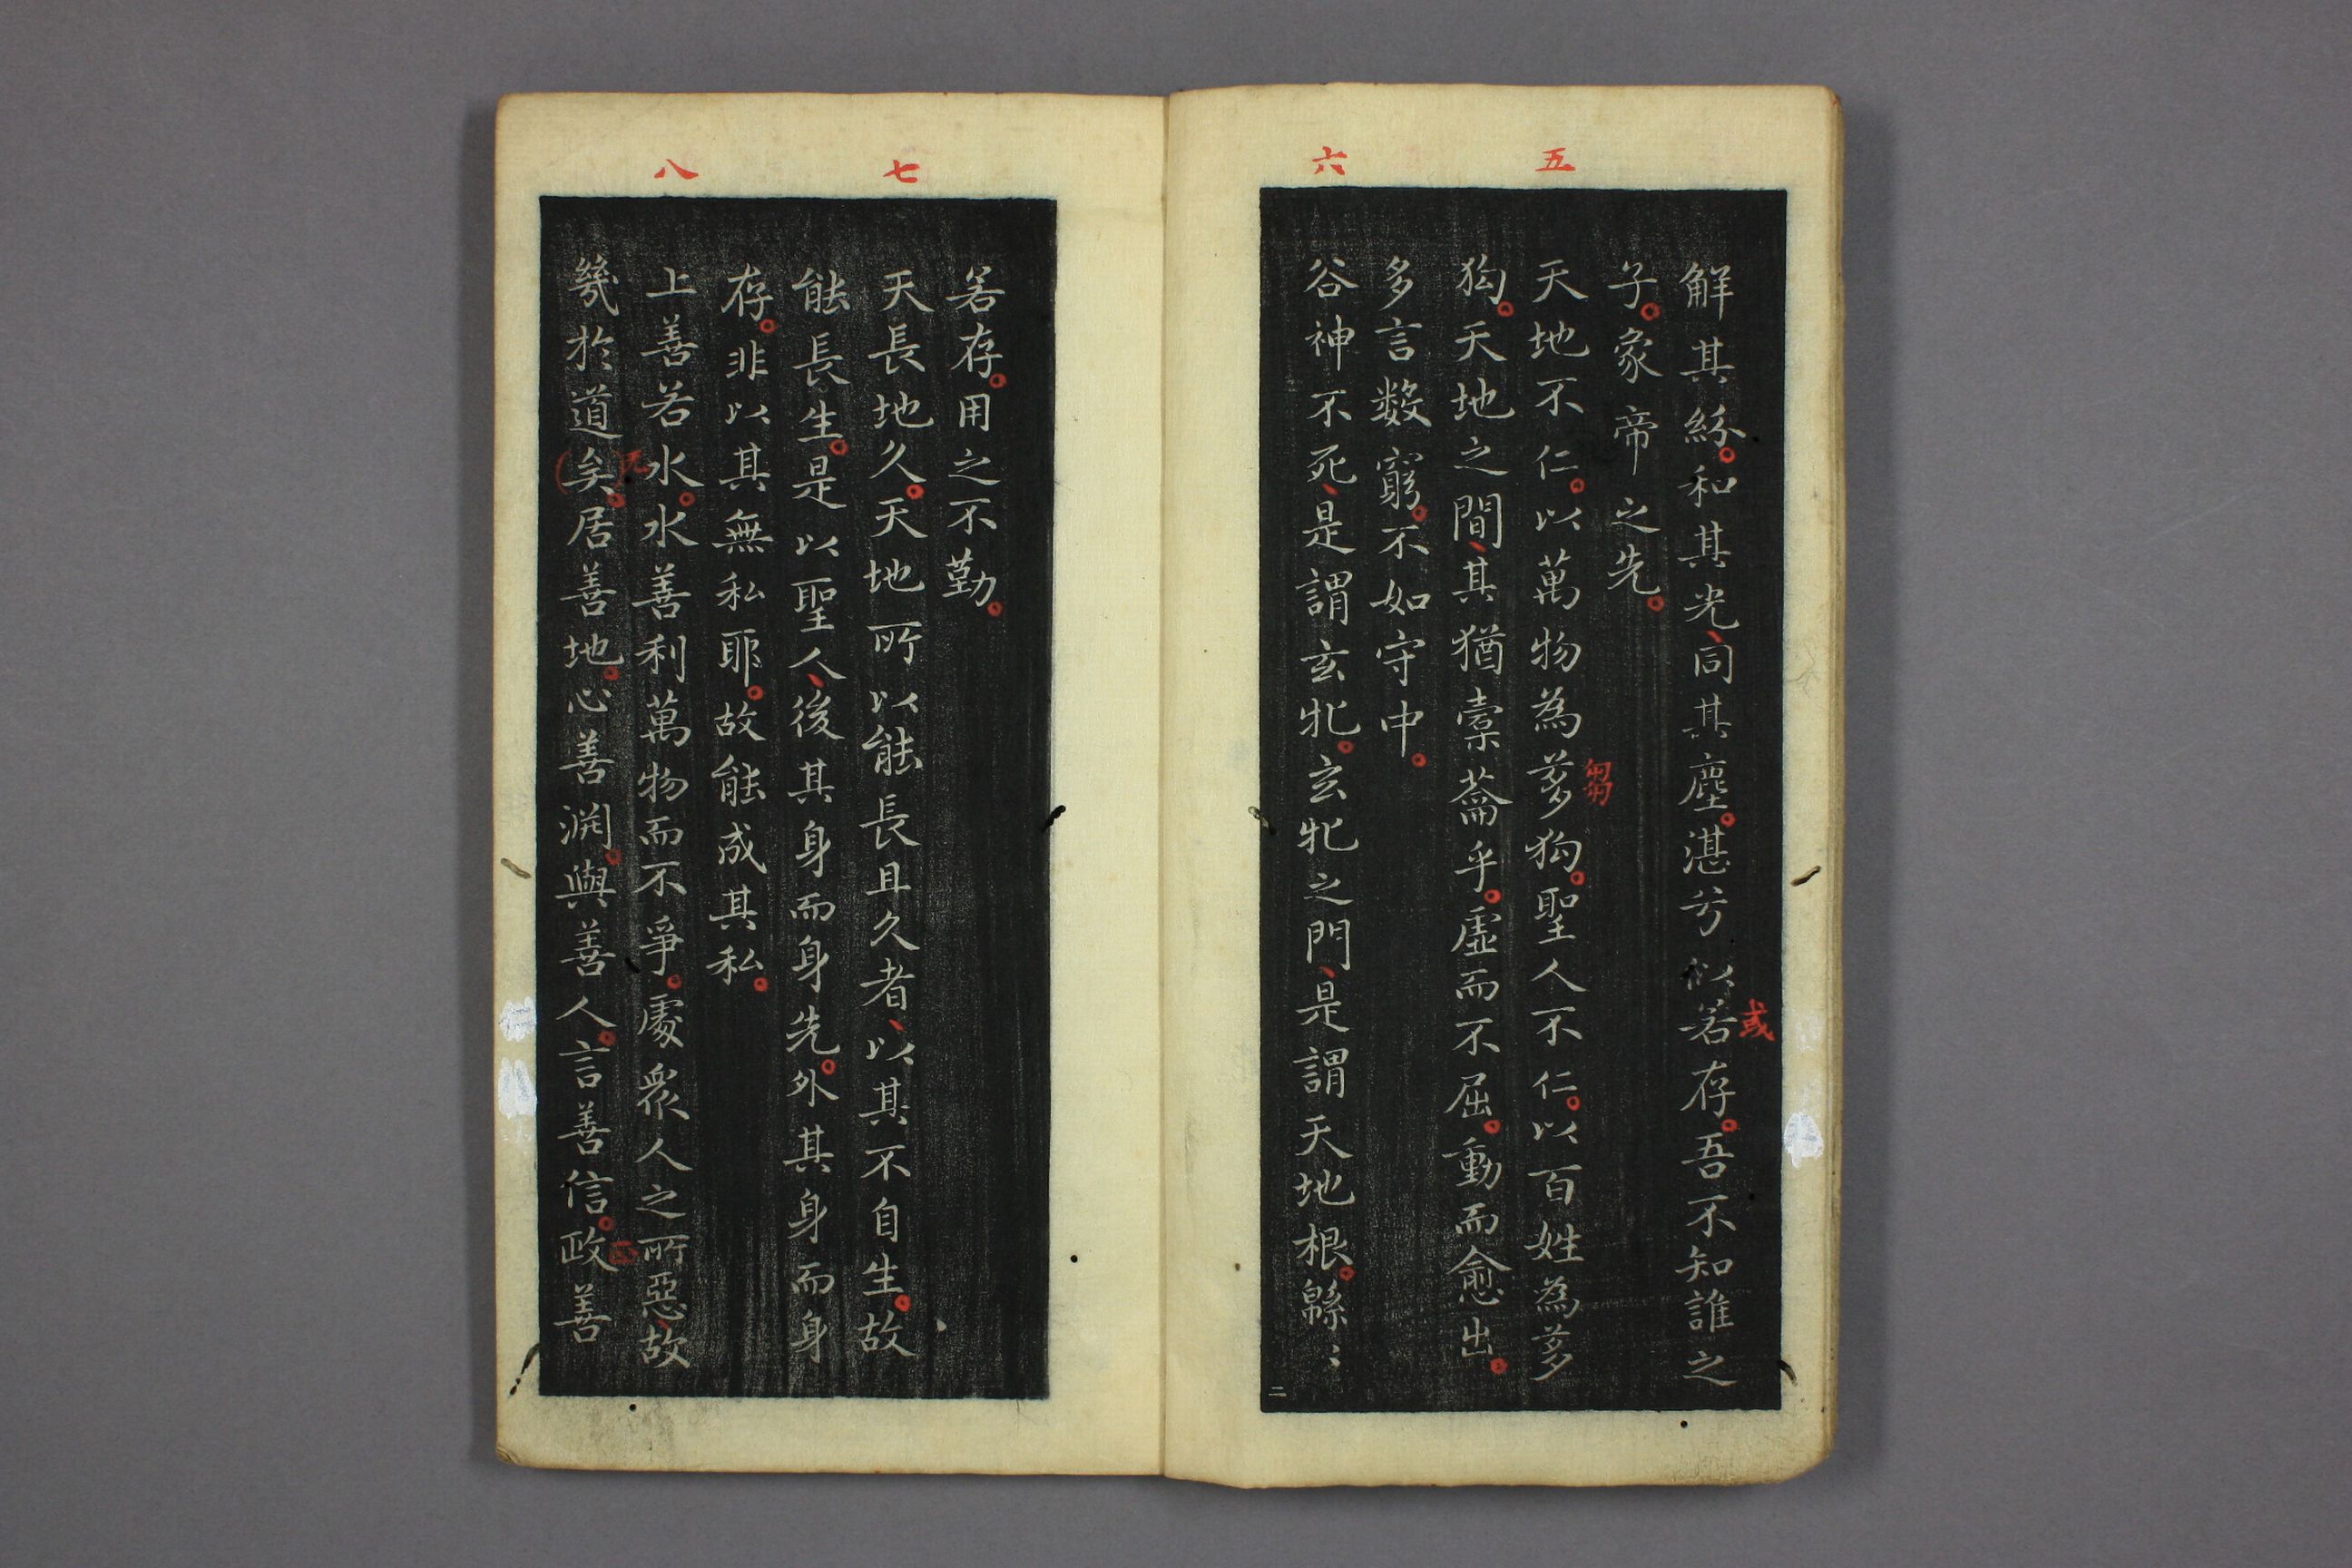 五
六
解其紛。和其光、同其塵。湛兮似若存。吾不知誰之
或
子。象帝之先。
天地不仁。以萬物為芻狗。聖人不仁。以百姓為芻
芻
狗。天地之間、其猶橐籥乎。虛而不屈。動而愈出。
多言數窮。不如守中。
谷神不死、是謂玄牝。玄牝之門、是謂天地根。緜〻
二
七
八
若存。用之不勤。
天長地久。天地所以能長且久者、以其不自生。故
能長生。是以聖人、後其身而身先。外其身而身
存。非以其無私耶。故能成其私。
上善若水。水善利萬物而不爭。處衆人之所惡、故
幾於道矣。居善地。心善渊。與善人。言善信。政善